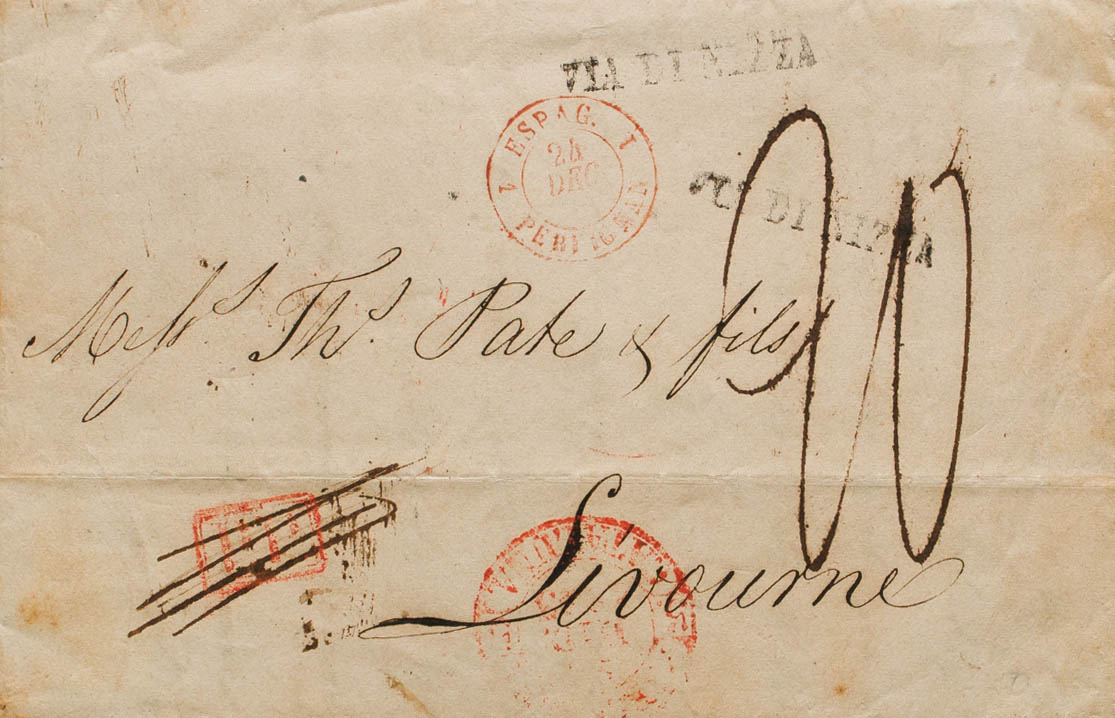 VIA DI NIZZA
1 ESPAG. 1
24
DEC
PERPIGNAN
DI NIZZA
20
Mess.rs Th.s Pate & fils
Livourne